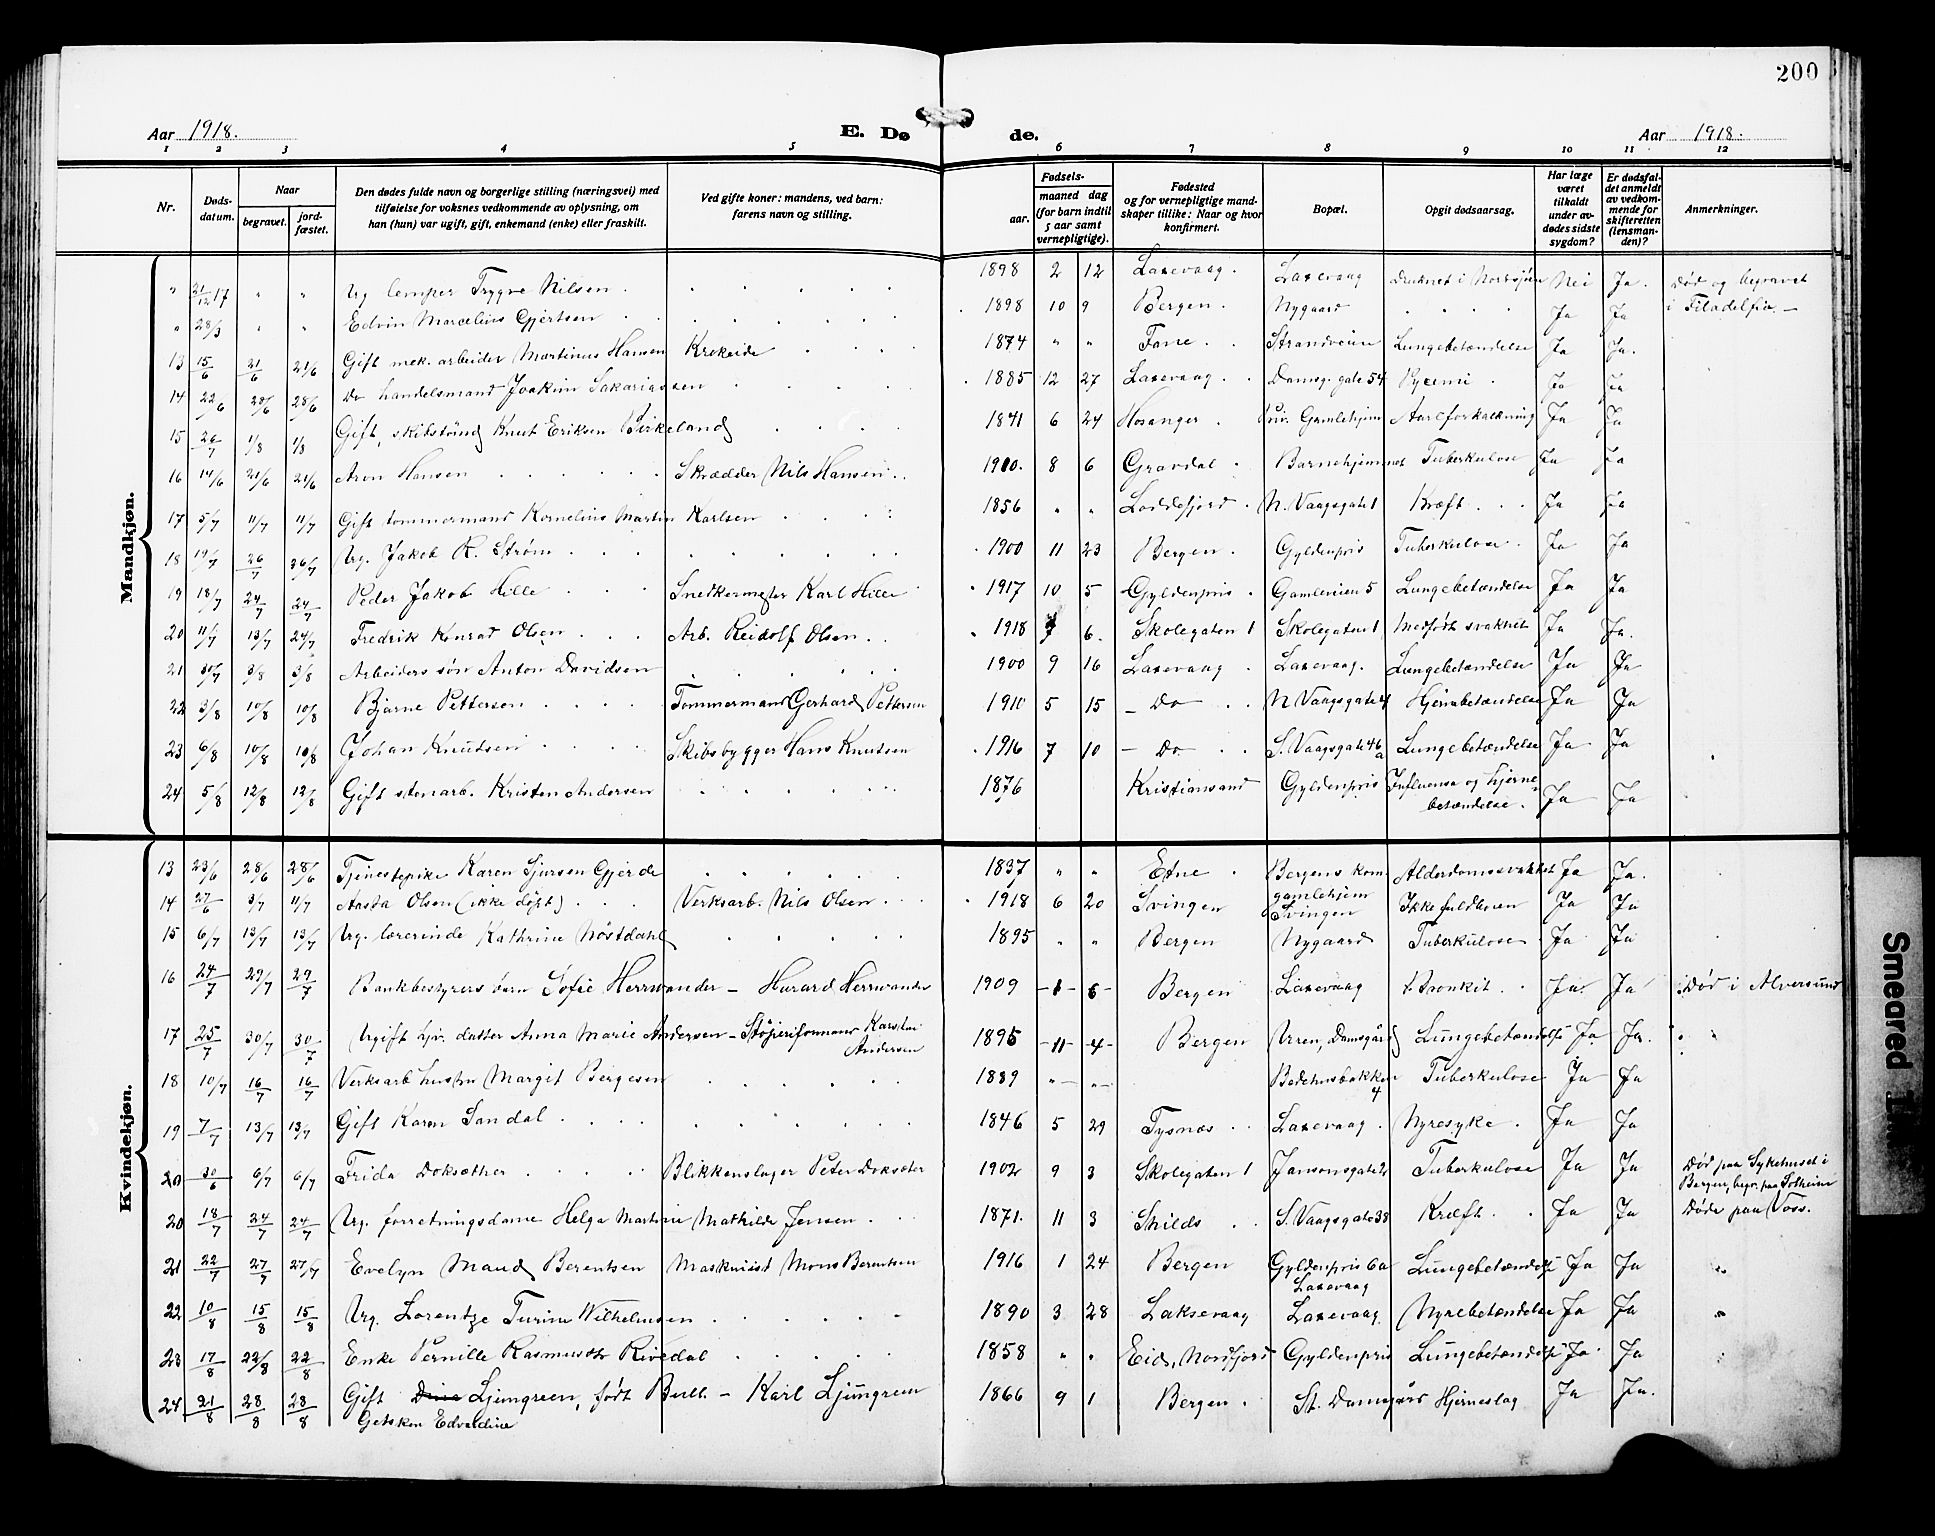 200
Aar 1918. E. Dø de. Aar 1918.
1 2 3 4 5 6 7 8 9 10 11 12
Nr. Døds-datum. Naar begravet. jord-fæstet. Den dødes fulde navn og borgerlige stilling (næringsvei) med tilføielse for voksnes vedkommende av oplysning, om han (hun) var ugift, gift, enkemand (enke) eller fraskilt. Ved gifte koner: mandens, ved barn: farens navn og stilling. Fødsels- aar. maaned dag (for barn indtil 5 aar samt vernepligtige). Fødested og for vernepligtige mand-skaper tillike: Naar og hvor konfirmert. Bopæl. Opgit dødsaarsag. Har læge været tilkaldt under av-dødes sidste sygdom? Er dødsfal-det anmeldt av vedkom-mende for skifteretten (lensman-den)? Anmerkninger.
Mandkjøn.
" 31/12 17 " " Ug. lemper Trygve Nilsen 1898 2 12 Laxevaag. Laxevaag Druknet i Nordsjøen Nei Ja. Død og begravet
" 28/3 " " Edvin Marcelius Gjertsen 1898 10 9 Bergen. Nygaard Ja Ja i Filadelfia. —
13 15/6 21/6 21/6 Gift mek. arbeider Martinus Hansen Krokeide 1874 " " Fane Strandveien Lungebetændelse Ja Ja.
14 22/6 28/6 28/6 Do handelsmand Joakim Sakariassen 1885 12 27 Laxevaag Damsg. gate 54 Pyæmi Ja Ja
15 26/7 1/8 1/8 Gift, skibstømd Knut Eriksen Birkeland 1841 6 24 Hosanger Priv. Gamlehjem Aareforkalkning Ja Ja
16 14/6 21/6 21/6 Aron Hansen Skrædder Nils Hansen 1910. 8 6 Gravdal Barnehjemmet Tuberkulose Ja Ja
17 5/7 11/7 11/7 Gift tømmermand Kornelius Martin Karlsen 1856 " " Loddefjord N. Vaagsgate 1 Kræft Ja Ja
18 19/7 26/7 26/7 Ug. Jakob R. Strøm 1900 11 23 Bergen Gyldenpris Tuberkulose Ja Ja
19 18/7 24/7 24/7 Peder Jakob Hille Snedkermester Karl Hille 1917 10 5 Gyldenpris Gamleveien 5 Lungebetændelse Ja Ja
20 11/7 13/7 24/7 Fredrik Konrad Olsen Arb. Reidolf Olsen 1918 7 6. Skolegaten 1 Skolegaten 1 Medfødt svakhet Ja Ja.
21 30/7 3/8 3/8 Arbeiders søn Anton Davidsen 1900 9 16 Laxevaag Laxevaag. Lungebetændelse Ja Ja
22 3/8 10/8 10/8 Bjarne Pettersen Tømmermand Gerhard Pettersen 1910 5 15 — Do N Vaagsgate 4 Hjernebetændelse Ja Ja
23 6/8 10/8 10/8 Johan Knudsen Skibsbygger Hans Knutsen 1916 7 10 — Do S. Vaagsgate 46a Lungebetændelse Ja Ja
24 5/8 12/8 12/8 Gift stenarb. Kristen Andersen 1876 Kristiansand Gyldenpris Influensa og hjerne-betændelse. Ja Ja
Kvindekjøn.
13 23/6 28/6 28/6 Tjenestepike Karen Sjursen Gjerde 1837 " " Etne Bergens kom gamlehjem Alderdomssvakhet Ja Ja.
14 27/6 3/7 11/7 Aasta Olsen (ikke døpt) Verksarb. Nils Olsen 1918 6 20 Svingen Svingen Ikke fuldbaren Ja Ja
15 6/7 13/7 13/7 Ug. lærerinde Kathrine Nøstdahl 1895 " " Bergen Nygaard Tuberkulose Ja Ja
16 24/7 29/7 29/7 Bankbestyrers barn Sofie Herrwander — Havard Herrwander 1909 — 1 — 6 — Bergen Laxevaag Bronkit Ja. Ja Død i Alversund
17 25/7 30/7 30/7 Ugift hjv. datter Anna Marie Andersen — Støperiformand Karsten Andersen 1895 — 11 — 4 — Bergen Urren, Damsgård Lungebetændelse Ja Ja.
18 10/7 16/7 16/7 Verksarb hustru Margit Bergesen 1889 " — " — Bedehusbakken 4 Tuberkulose Ja Ja
19 7/7 13/7 13/7 Gift Karen Sandal 1846 5 29 Tysnæs Laxevaag Nyresyke Ja Ja
20 30/6 6/7 6/7 Frida Doksæther Blikkenslager Peter Doksæter 1902 9 3 Skolegaten 1 Jansonsgate 2 Tuberkulose Ja Ja Død paa Sykehuset i Bergen, begr. paa Solheim
20 18/7 24/7 24/7 Ug. forretningsdame Helga Martine Mathilde Jensen 1871. 11 3 Skilds S. Vaagsgate 38 Kræft Ja Ja Døde paa Voss.
21 22/7 27/7 27/7 Evelyn Maud Berentsen Maskinist Mons Berentsen 1916 1 24 Bergen Gyldenpris 6a Laxevaag Lungebetændelse Ja Ja
22 10/8 15/8 15/8 Ug. Lorentze Turine Wilhelmsen 1890 3 28 Laksevaag Laxevaag. Nyrebetændelse Ja Ja
23 17/8 22/8 22/8 Enke Pernille Rasmusdtr Rivedal 1858 " " Eid, Nordfjord Gyldenpris Lungebetændelse Ja Ja
24 21/8 28/8 28/8 Gift Ljungreen, født Bull — Karl Ljungreen 1866 9 1 Bergen St. Damsgård Hjerneslag Ja Ja.
Getsken Edvardine
Smeared